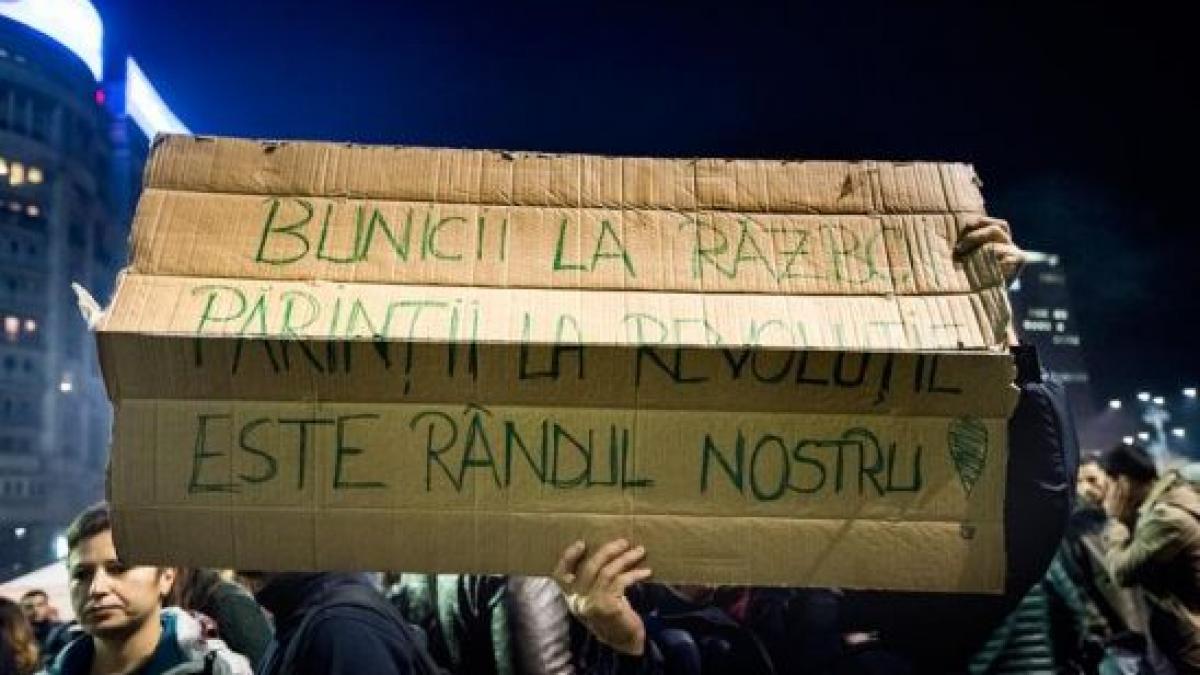 BUNICII LA RĂZBOI
PĂRINȚII LA REVOLUȚIE
ESTE RÂNDUL NOSTRU